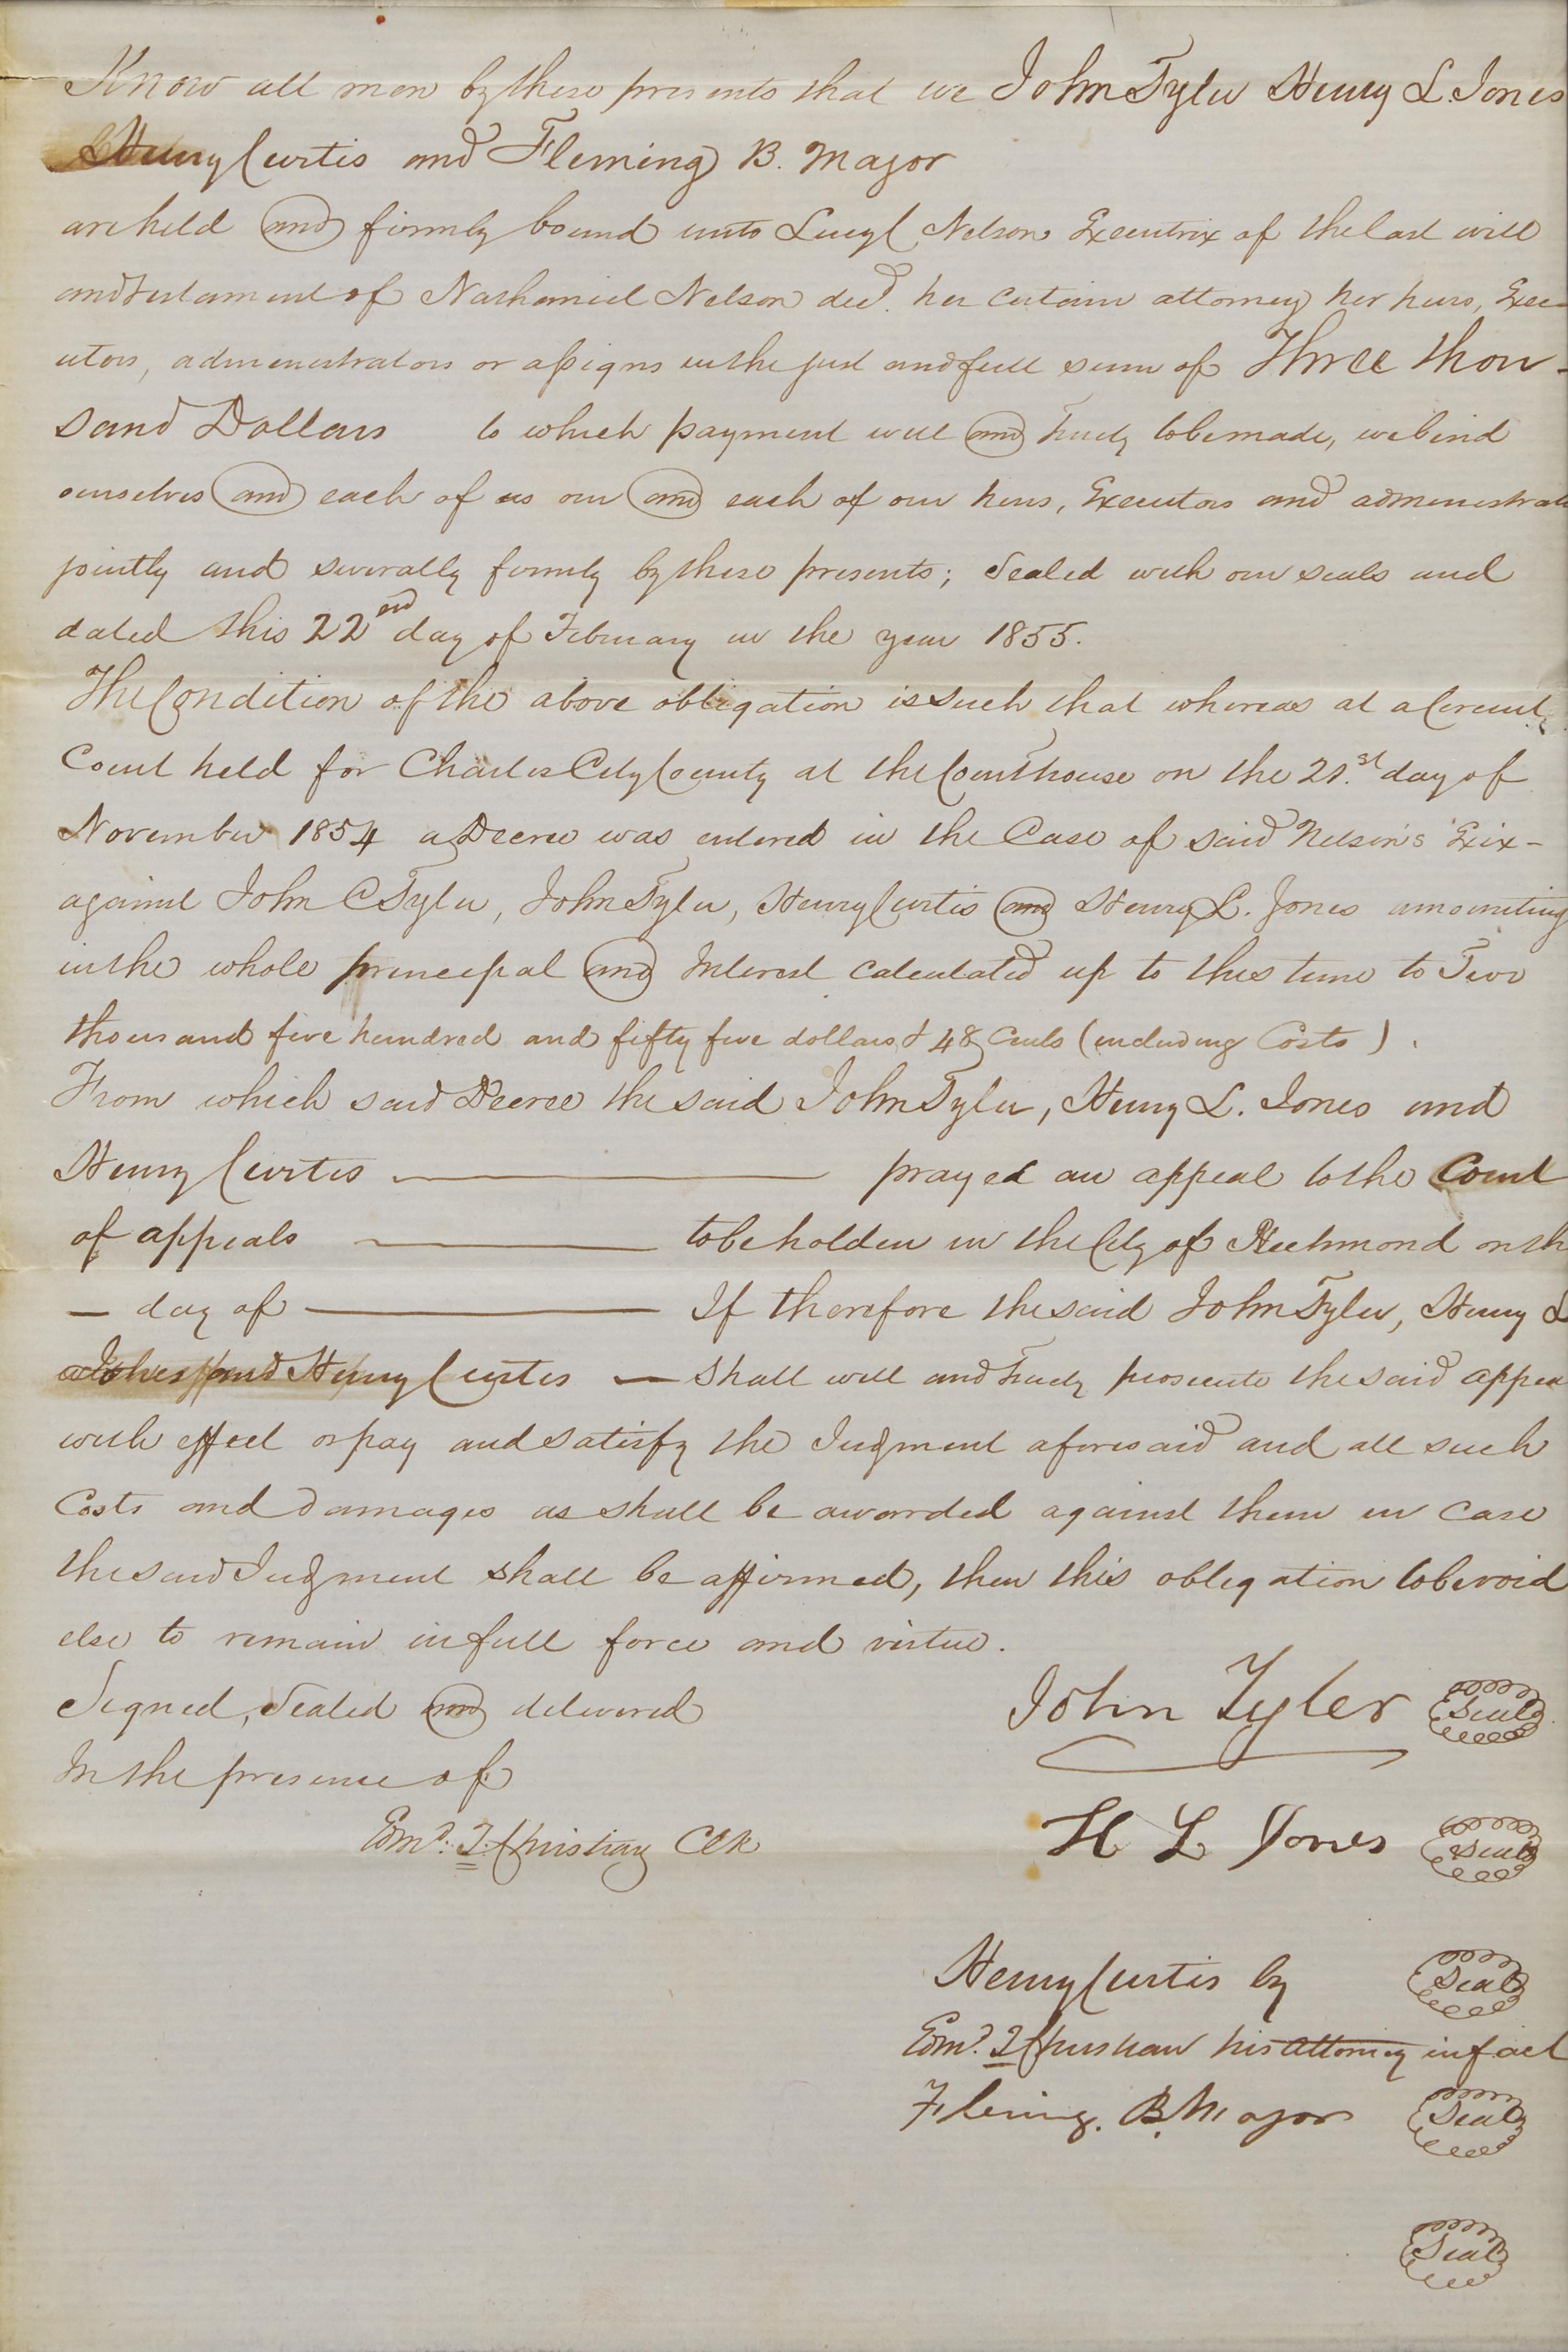 Know all men by these presents that we John Tyler Henry L. Jones
Henry Curtis and Fleming B. Major
are held and firmly bound unto Lucy C Nelson Executrix of the last will
and testament of Nathaniel Nelson decd. her certain attorney her heirs, Exec-
utors, administrators or assigns in the just and full sum of Three thou-
sand Dollars to which payment well and truly to be made, we bind
ourselves and each of us our and each of our heirs, Executors and administrat
jointly and severally firmly by these presents; Sealed with our seals and
dated this 22nd day of February in the year 1855.
The Condition of the above obligation is such that whereas at a Circuit
Court held for Charles City County at the Courthouse on the 21.st day of
November 1854 a Decree was entered in the Case of said Nelson's Exix-
against John C Tyler, John Tyler, Henry Curtis and Henry L. Jones amounting
in the whole principal and Interest calculated up to this time to Two
thousand five hundred and fifty five dollars & 48 Cents (including Costs).
From which said Decree the said John Tyler, Henry L. Jones and
Henry Curtis — prayed an appeal to the Court
of appeals — to be holden in the City of Richmond on th
— day of — If therefore the said John Tyler, Henry L
Jones and Henry Curtis — Shall well and truly prosecute the said appea
with effect or pay and satisfy the Judgment aforesaid and all such
Costs and damages as shall be awarded against them in case
the said Judgment shall be affirmed, then this obligation to be void
else to remain in full force and virtue.
Signed, Sealed and delivered
In the presence of
Edmd. T. Christian Clk
John Tyler Seal
H L Jones Seal
Henry Curtis by Seal
Edmd. T Christian his attorney in fact
Fleming. B. Major Seal
Seal